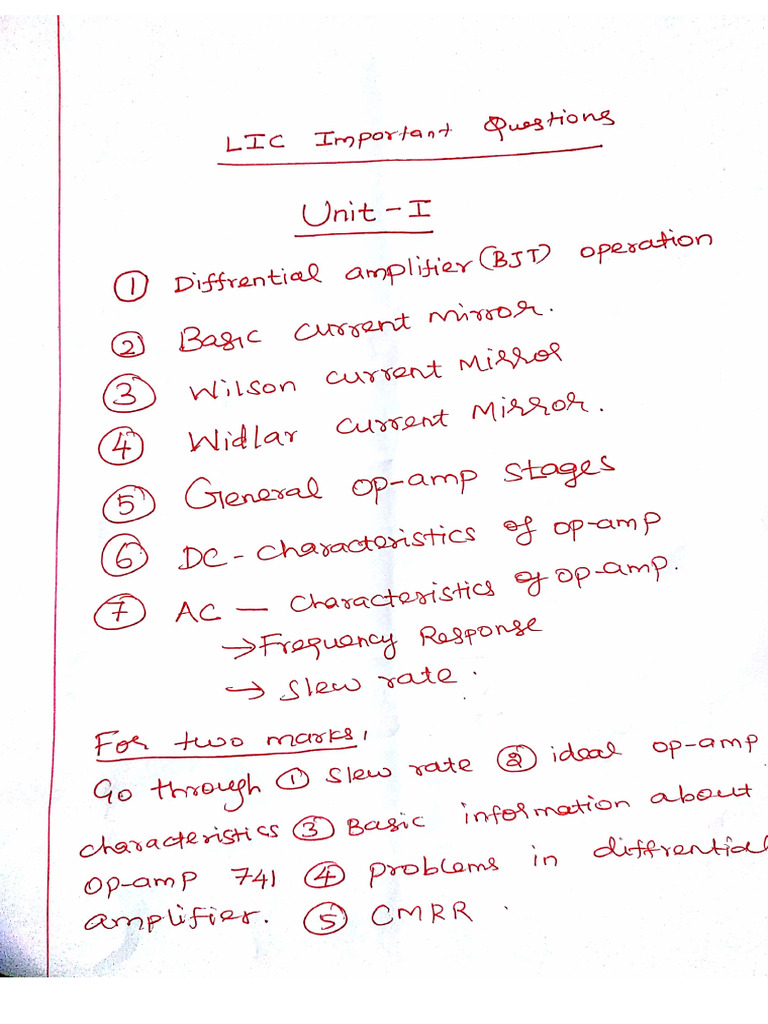 LIC Important Questions
Unit - I
① Diffrential amplifier (BJT) operation
② Basic current mirror.
③ Wilson current mirror
④ Widlar current mirror.
⑤ General op-amp stages
⑥ DC - characteristics of op-amp
⑦ AC — characteristics of op-amp.
→ Frequency Response
→ slew rate.
For two marks,
Go through ① slew rate ② ideal op-amp
characteristics ③ Basic information about
op-amp 741 ④ problems in diffrential
amplifier. ⑤ CMRR.